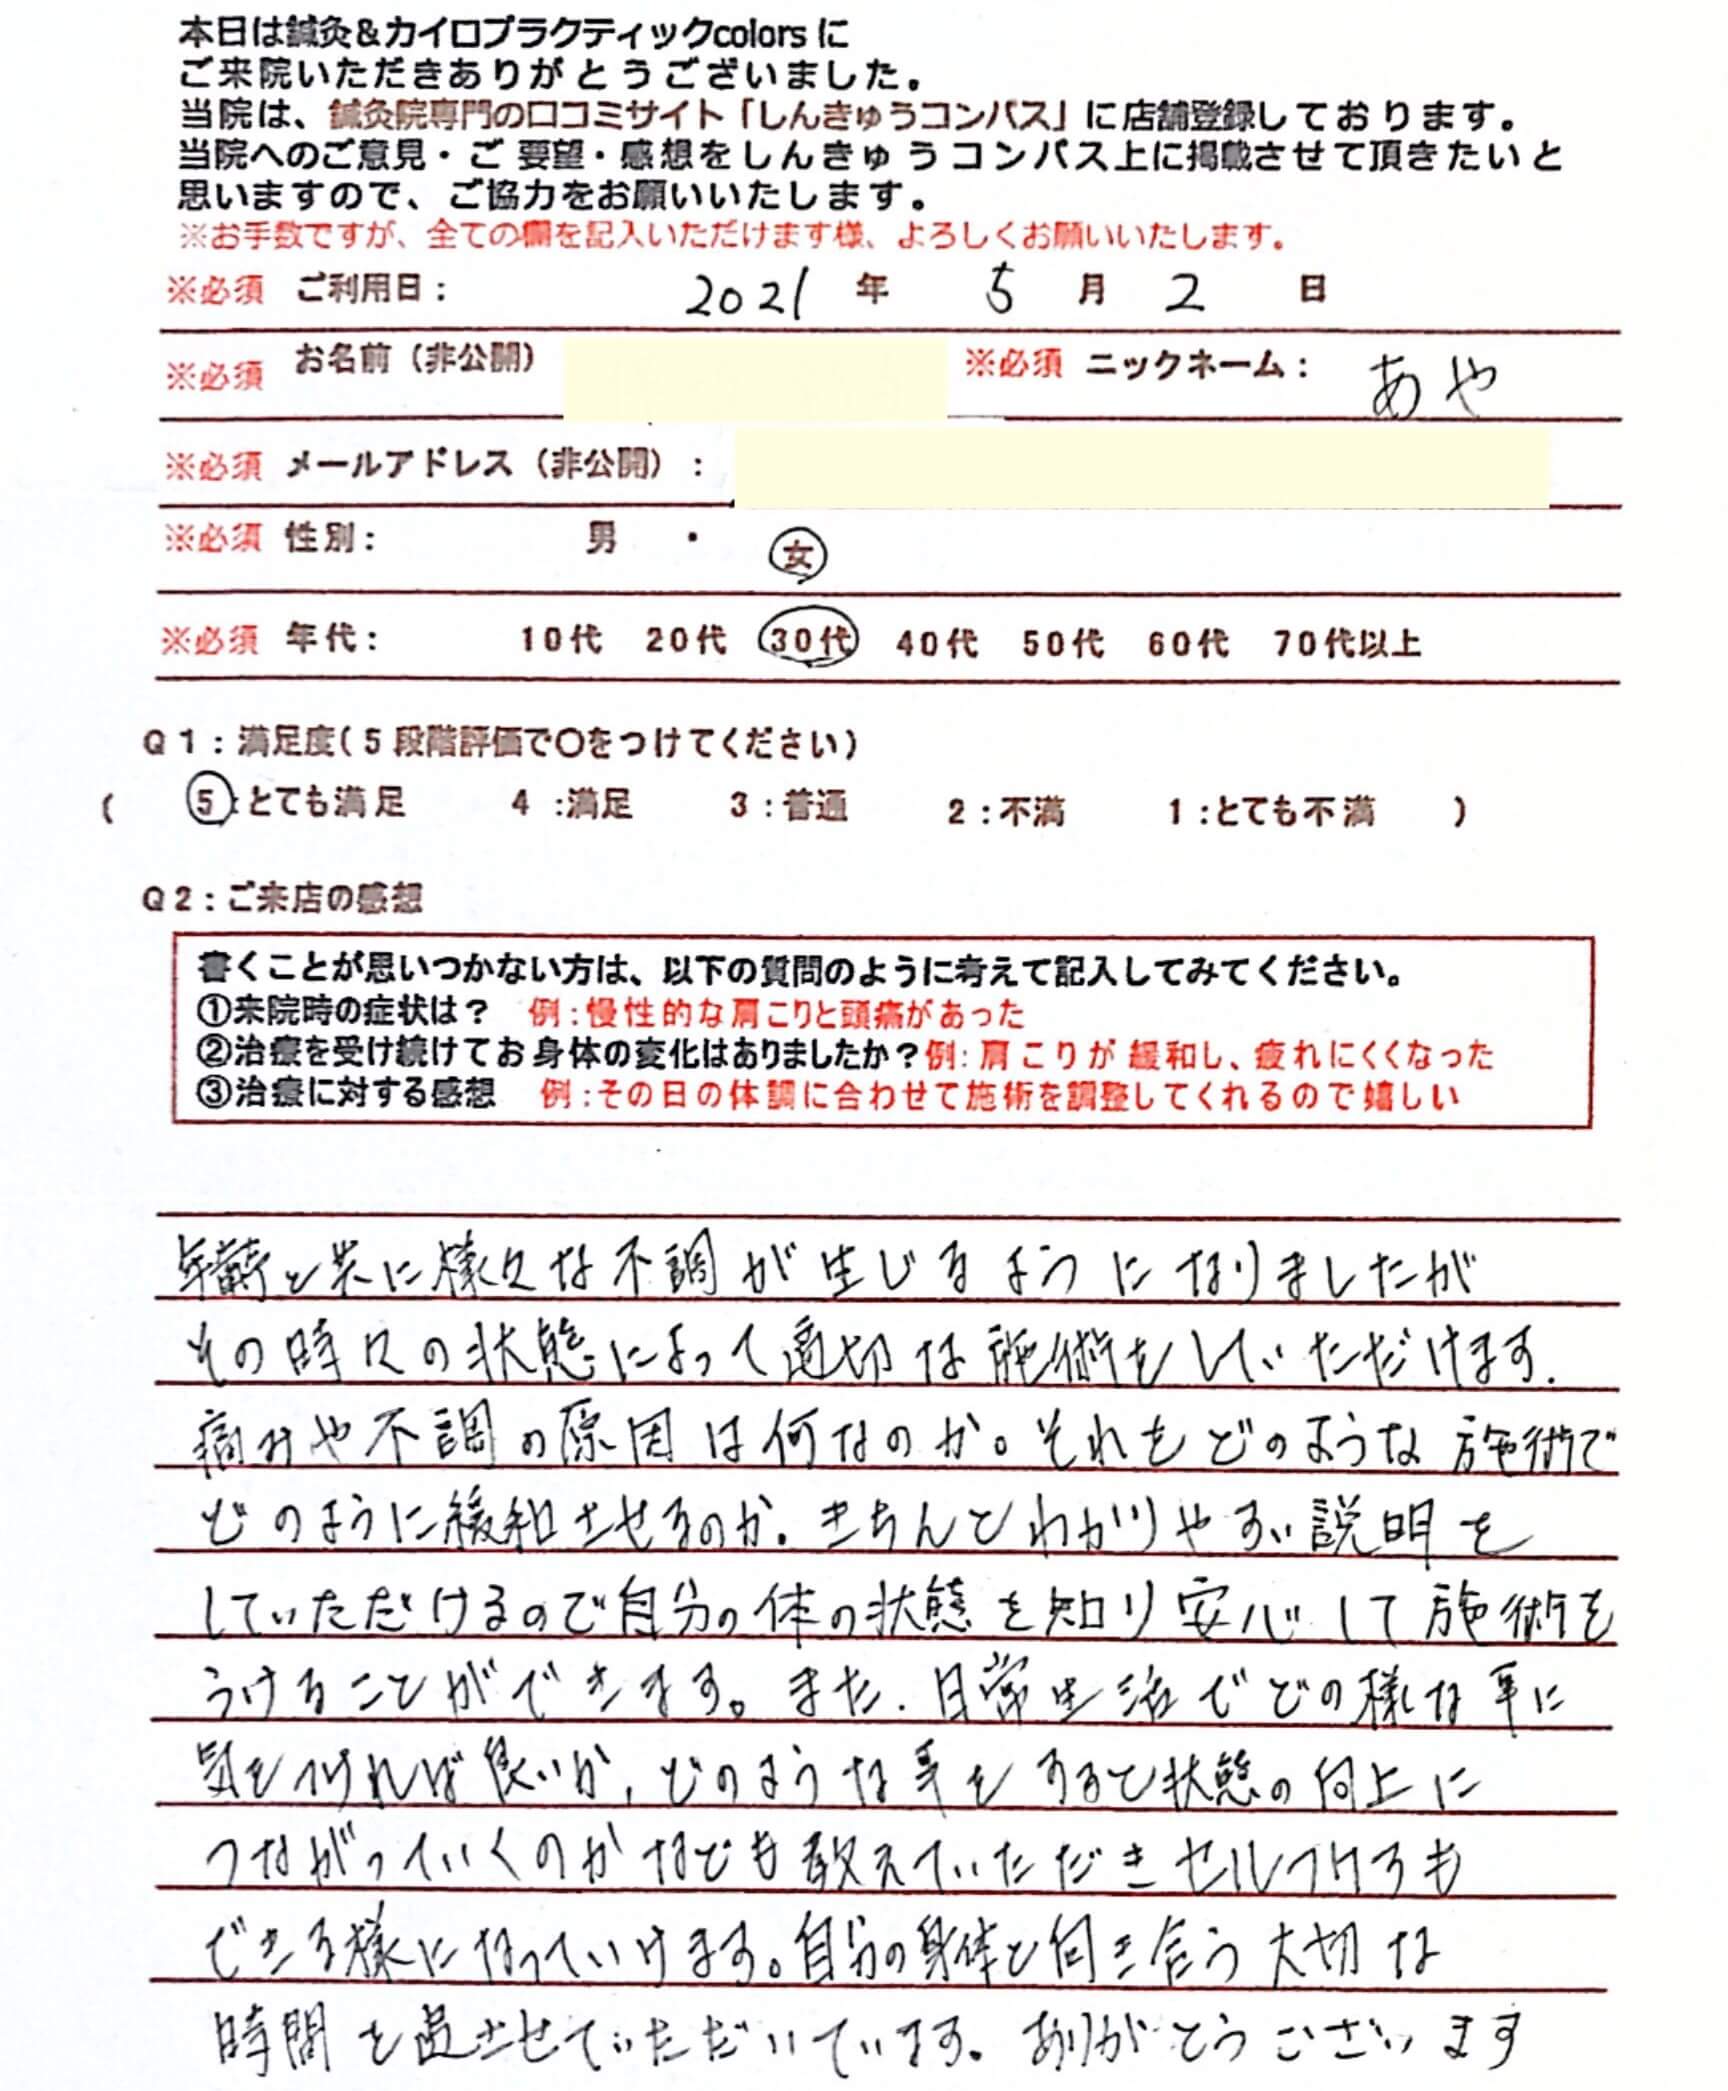 本日は鍼灸&カイロプラクティックcolorsに
ご来院いただきありがとうございました。
当院は、鍼灸院専門の口コミサイト「しんきゅうコンパス」に店舗登録しております。
当院へのご意見・ご要望・感想をしんきゅうコンパス上に掲載させて頂きたいと
思いますので、ご協力をお願いいたします。
※お手数ですが、全ての欄を記入いただけます様、よろしくお願いいたします。
※必須 ご利用日: 2021 年 5 月 2 日
※必須 お名前(非公開) ※必須 ニックネーム: あや
※必須 メールアドレス(非公開):
※必須 性別: 男 ・ 女
※必須 年代: 10代 20代 30代 40代 50代 60代 70代以上
Q1:満足度(5段階評価で〇をつけてください)
( 5:とても満足 4:満足 3:普通 2:不満 1:とても不満 )
Q2:ご来店の感想
書くことが思いつかない方は、以下の質問のように考えて記入してみてください。
①来院時の症状は? 例:慢性的な肩こりと頭痛があった
②治療を受け続けてお身体の変化はありましたか?例:肩こりが緩和し、疲れにくくなった
③治療に対する感想 例:その日の体調に合わせて施術を調整してくれるので嬉しい
年齢と共に様々な不調が生じるようになりましたが
その時々の状態によって適切な施術をしていただけます.
痛みや不調の原因は何なのか。それをどのような施術で
どのように緩和させるのか.きちんとわかりやすい説明を
していただけるので自分の体の状態を知り安心して施術を
うけることができます。また.日常生活でどの様な事に
気をつければ良いか,どのような事をすると状態の向上に
つながっていくのかなども教えていただきセルフケアも
できる様になっていけます。自分の身体と向き合う大切な
時間を過させていただいています。ありがとうございます